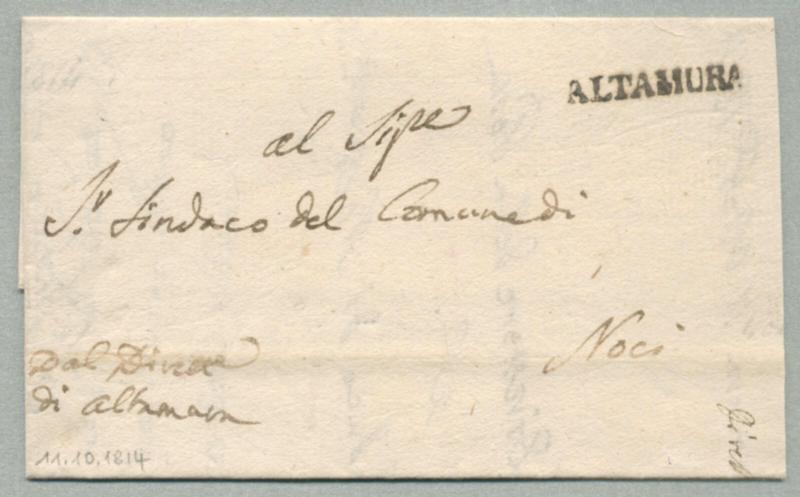 ALTAMURA
al Sig.re
S.r Sindaco del Comune di
Noci
Dal Diret.e
di Altamura
11.10.1814